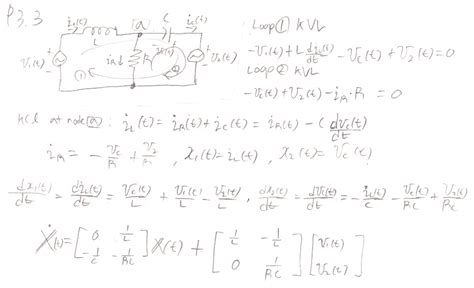 P3.3
i_L(t) [a] C i_c(t)
L
V₁(t) i_R↓ R V_c(t) V₂(t)
① ②
Loop① KVL
-V₁(t) + L di_L(t)/dt - V_c(t) + V₂(t) = 0
Loop② KVL
-V_c(t) + V₂(t) - i_R·R = 0
KCL at node [a] : i_L(t) = i_R(t) + i_c(t) = i_R(t) - C dV_c(t)/dt
i_R = - V_c/R + V₂/R , X₁(t) = i_L(t), X₂(t) = V_c(t)
dx₁(t)/dt = di_L(t)/dt = V_c(t)/L + V₁(t)/L - V₂(t)/L , dx₂(t)/dt = dV_c(t)/dt = - i_L(t)/C - V_c(t)/RC + V₂(t)/RC
Ẋ(t) = [0 1/L; -1/C -1/RC] X(t) + [1/L -1/L; 0 1/RC] [V₁(t); V₂(t)]